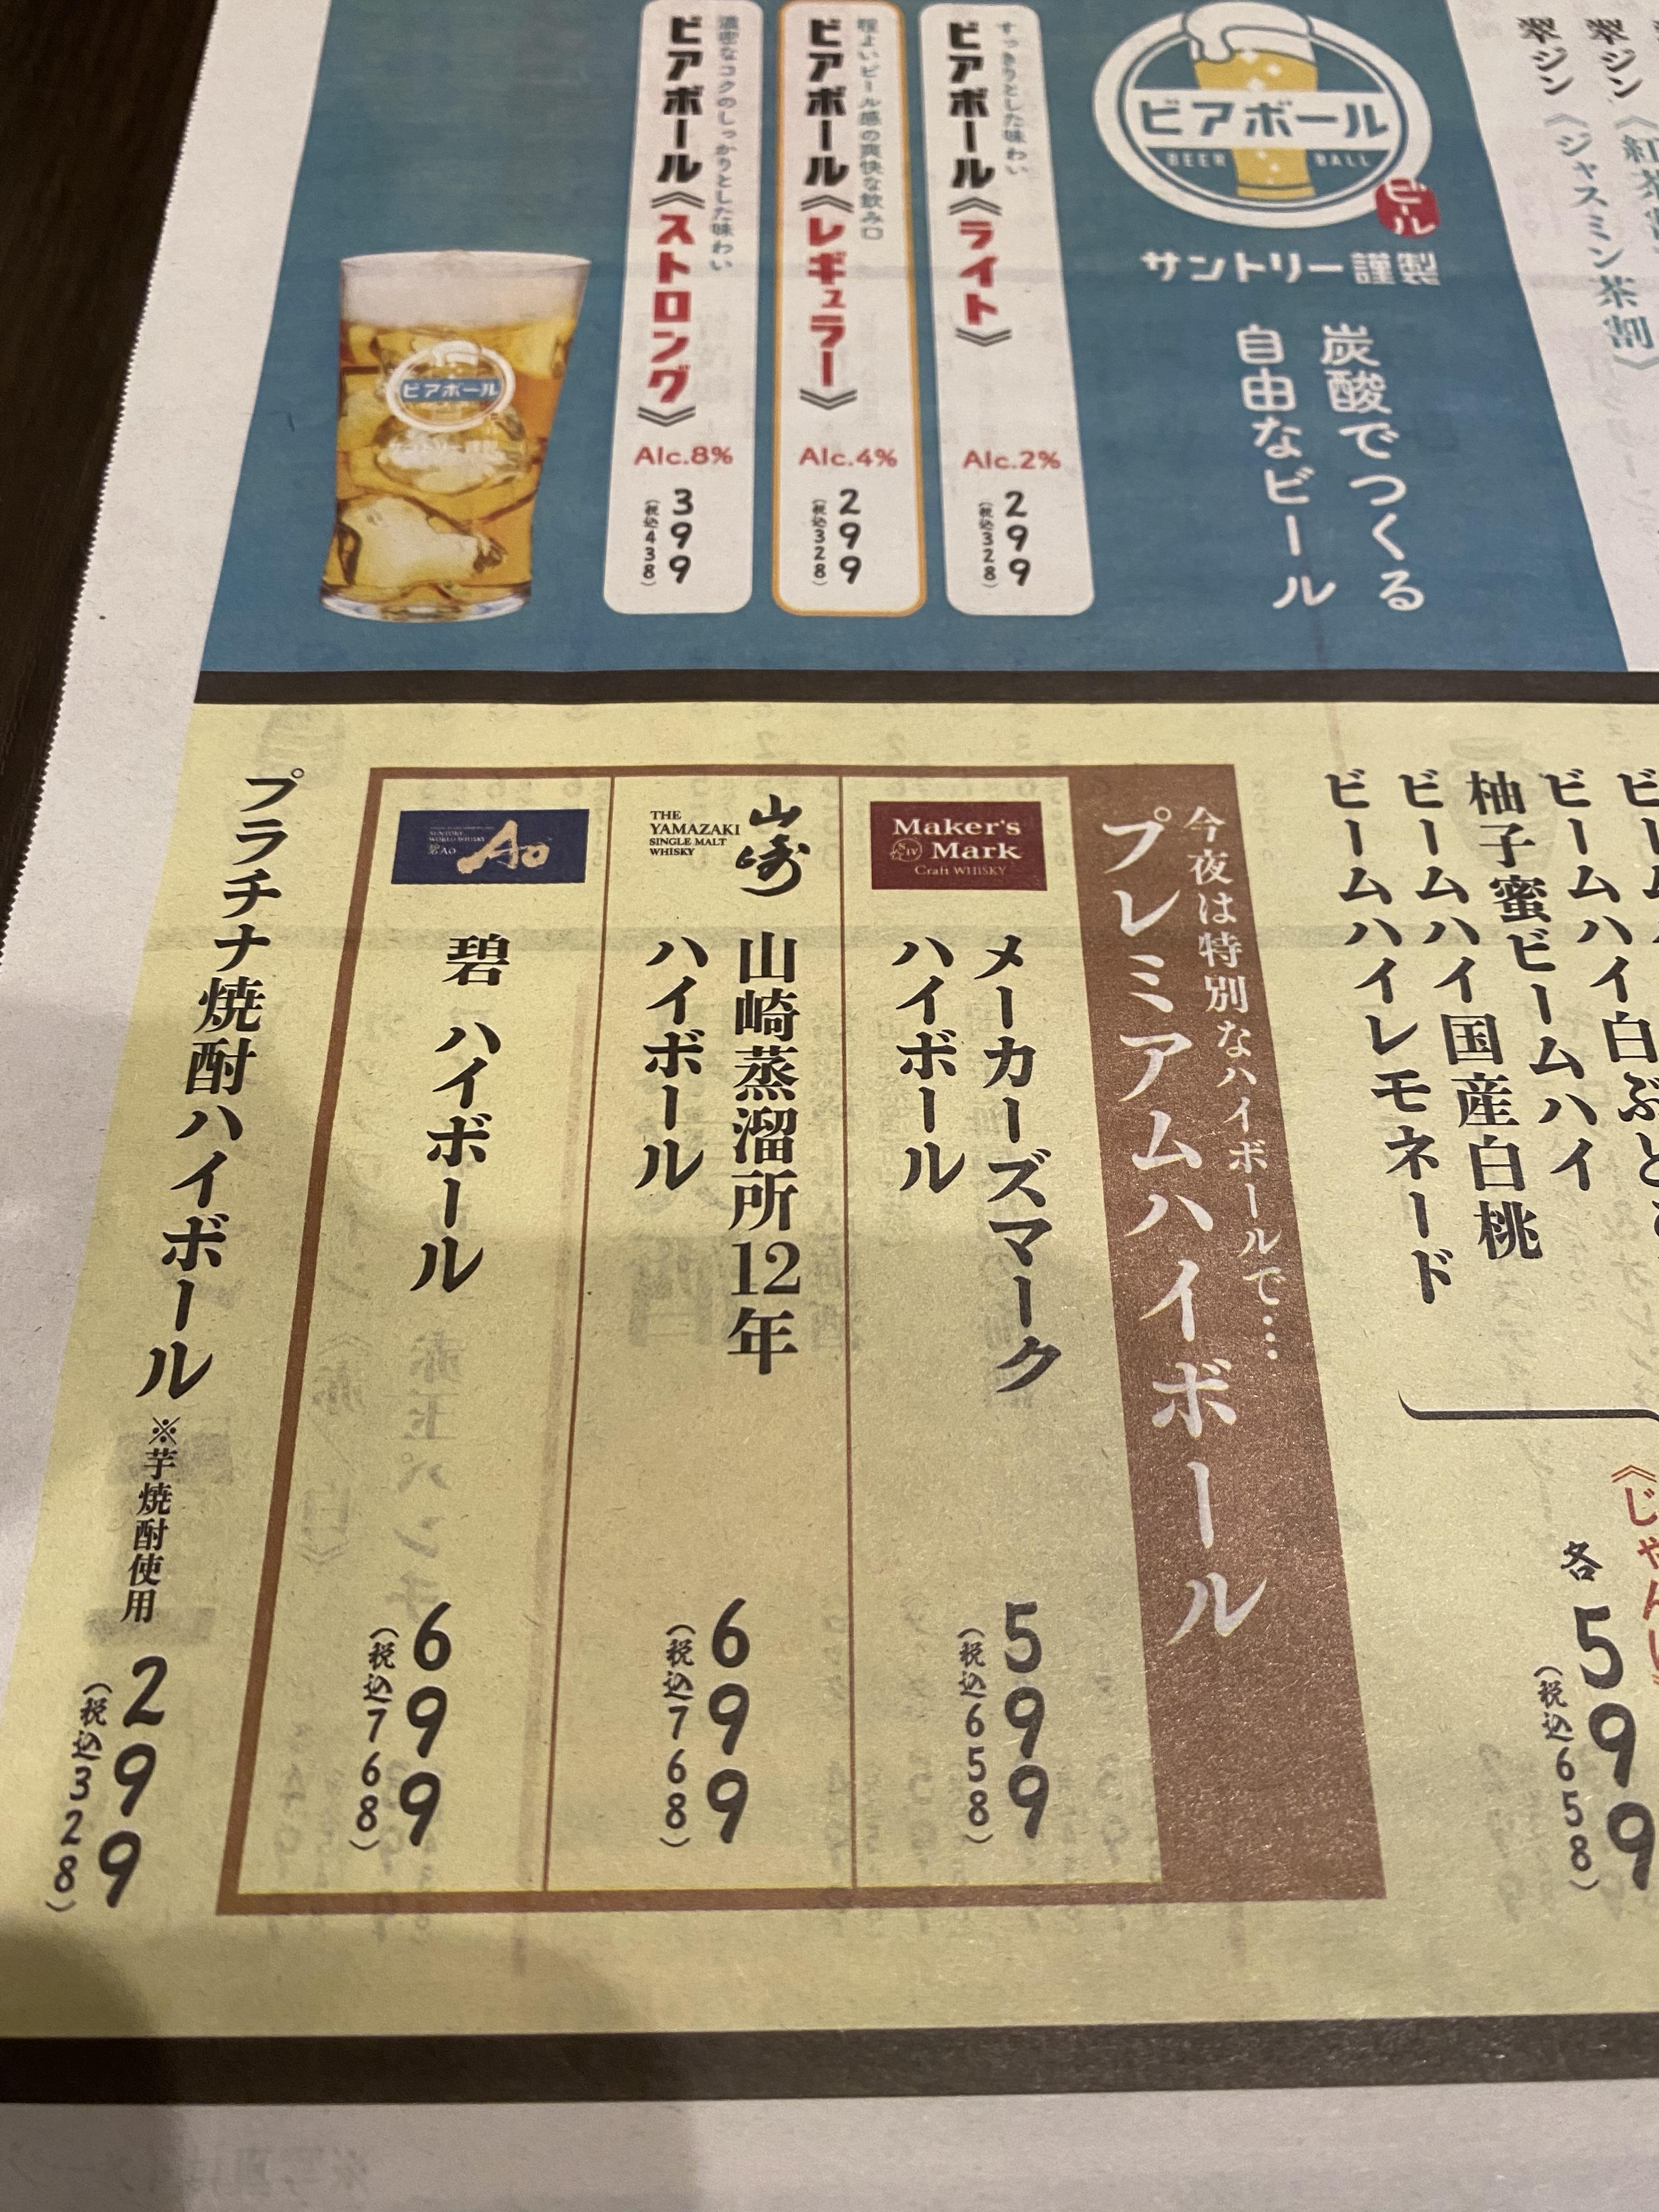 翠ジン《ジャスミン茶割》
ビアボール
BEER BALL
ビール
サントリー謹製
炭酸でつくる
自由なビール
すっきりとした味わい
ビアボール《ライト》
Alc.2%
299
(税込328)
程よいビール感の爽快な飲み口
ビアボール《レギュラー》
Alc.4%
299
(税込328)
濃密なコクのしっかりとした味わい
ビアボール《ストロング》
Alc.8%
399
(税込438)
ビアボール
柚子蜜ビームハイ
ビームハイ国産白桃
ビームハイレモネード
各599
(税込658)
今夜は特別なハイボールで…
プレミアムハイボール
Maker's
Mark
Craft WHISKY
メーカーズマーク
ハイボール
599
(税込658)
山崎
THE
YAMAZAKI
SINGLE MALT
WHISKY
山崎蒸溜所12年
ハイボール
699
(税込768)
SUNTORY
WORLD WHISKY
碧Ao
Ao
碧 ハイボール
699
(税込768)
プラチナ焼酎ハイボール ※芋焼酎使用
299
(税込328)